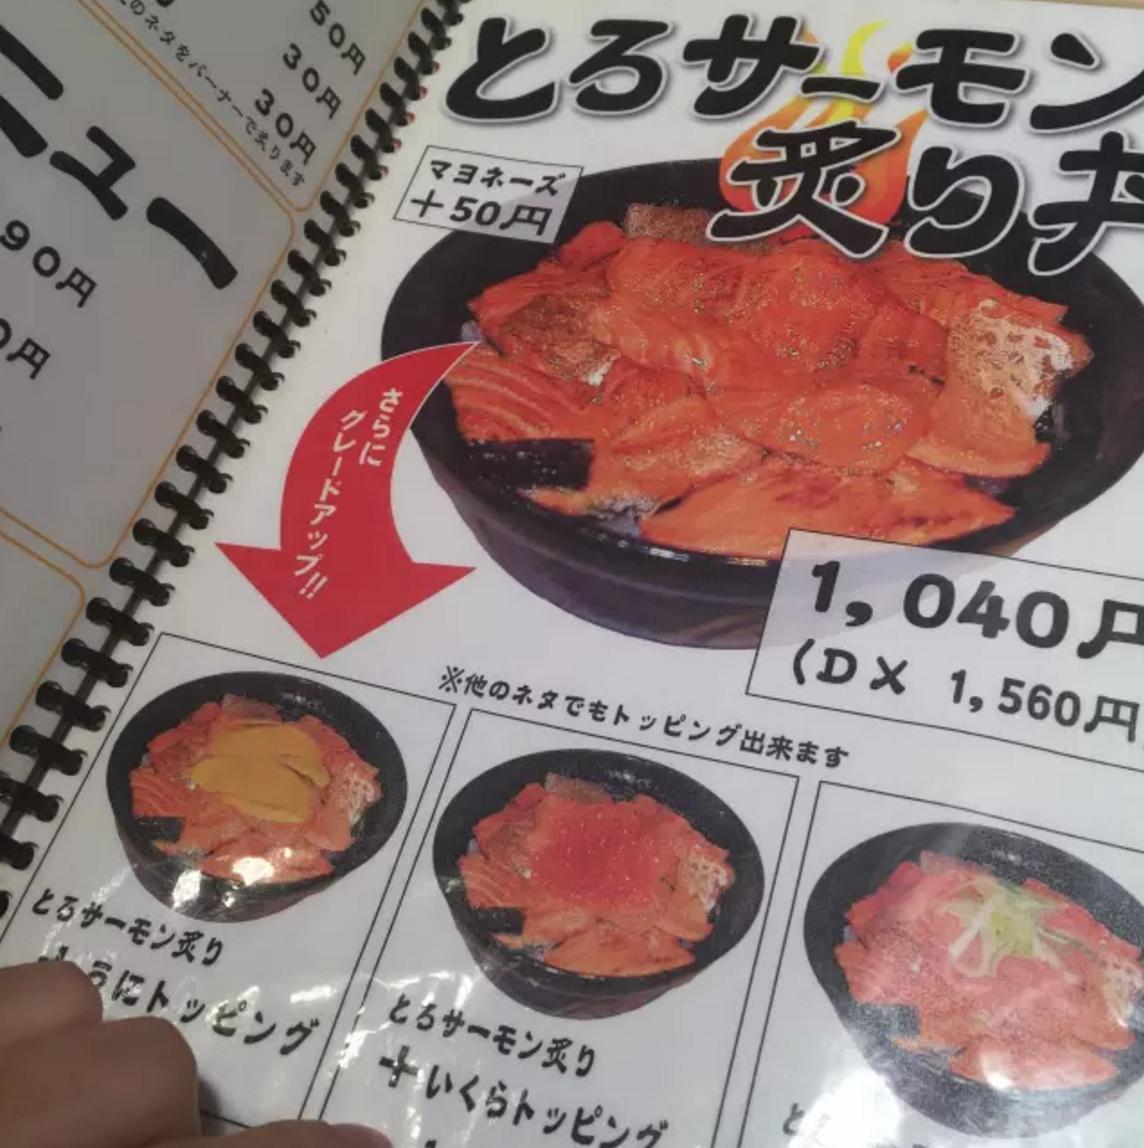 50円
30円
30円
のネタをバーナーで炙ります
ニュー
90円
0円
とろサーモン
炙り丼
マヨネーズ
+50円
さらに
グレードアップ!!
1,040円
(DX 1,560円
※他のネタでもトッピング出来ます
とろサーモン炙り
+うにトッピング
とろサーモン炙り
+いくらトッピング
と